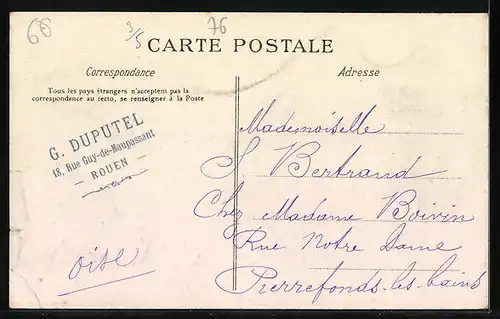 66
3/5
76
CARTE POSTALE
Correspondance
Adresse
Tous les pays étrangers n'acceptent pas la
correspondance au recto, se renseigner à la Poste
G. DUPUTEL
18, Rue Guy-de-Maupassant
- ROUEN -
Mademoiselle
S. Bertrand
Chez Madame Boivin
Rue Notre Dame
Pierrefonds-les-bains
Oise